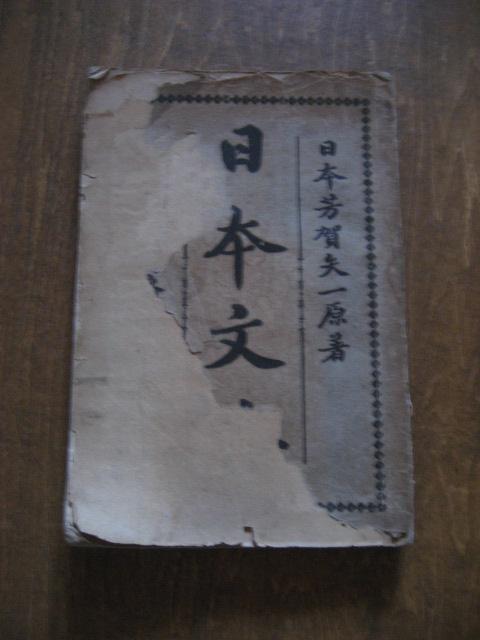 日本芳賀矢一原著
日本文